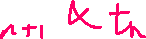 n+1 & tn